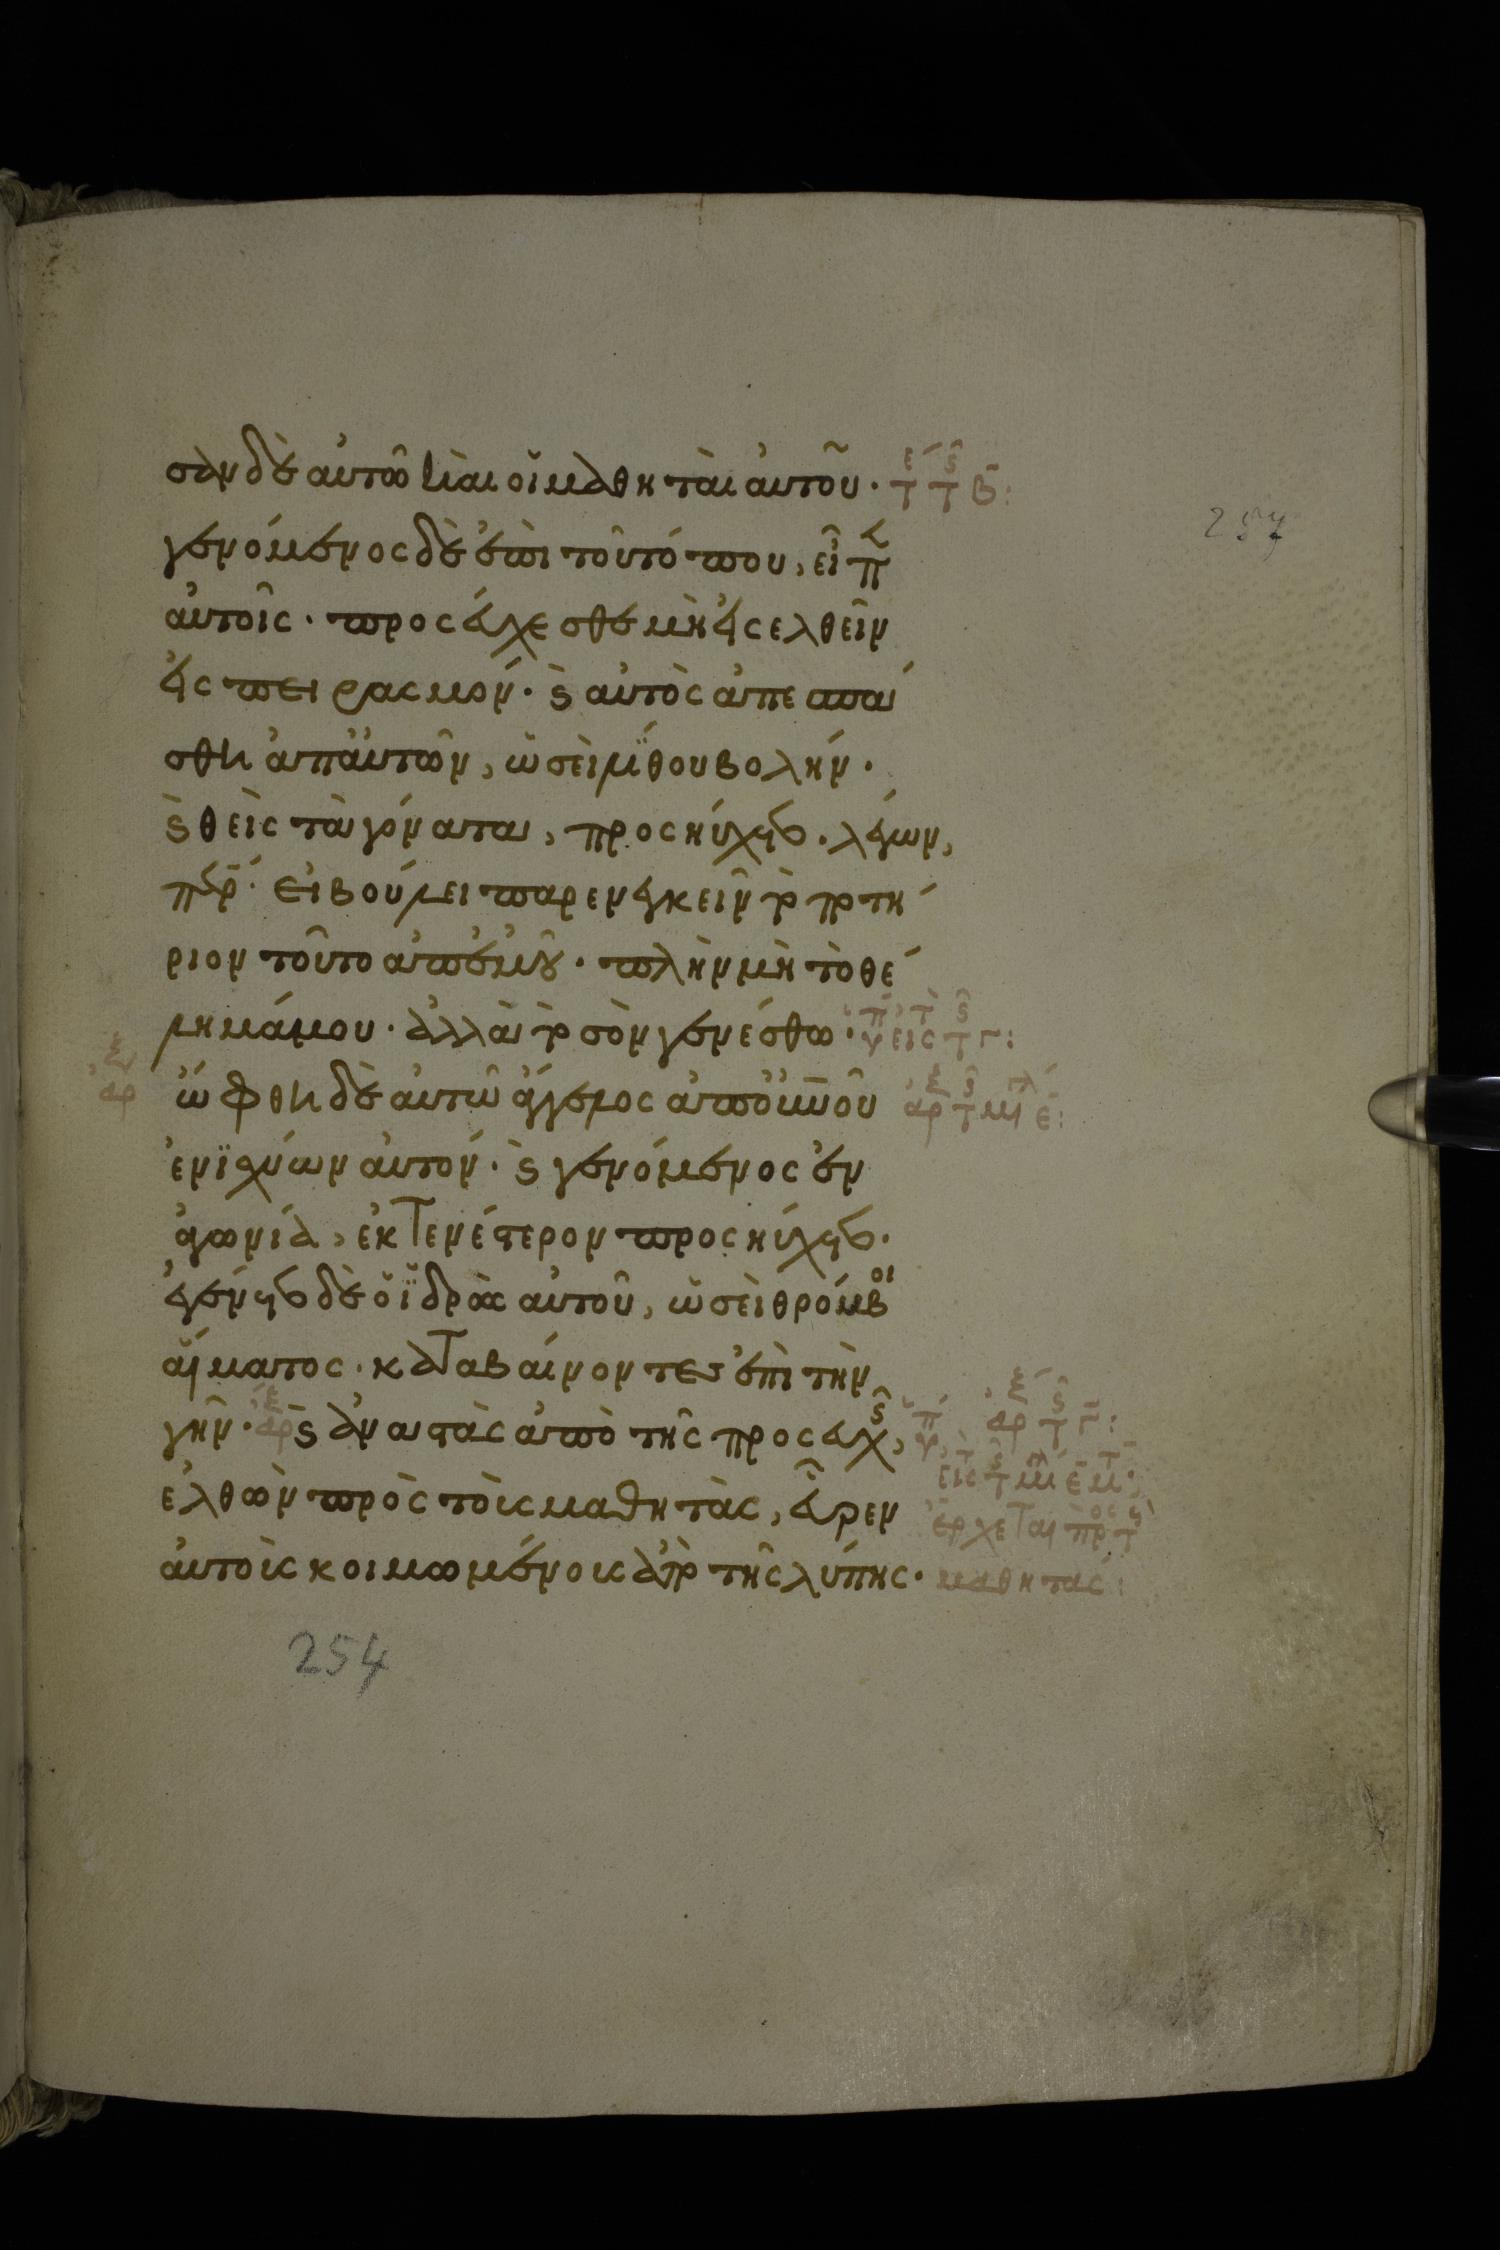 σαν δὲ αὐτῶ καὶ οἱ μαθηταὶ αὐτοῦ·
γενόμενος δὲ ἐπὶ τοῦ τόπου, εἶπ
αὐτοῖς· προσεύχεσθε μὴ εἰσελθεῖν
εἰς πειρασμόν· ϛ αὐτὸς ἀπεσπά
σθη ἀπ' αὐτῶν, ὡσεὶ λίθου βολήν·
ϛ θεὶς τὰ γόνατα, προσηύχετο· λέγων,
περ· εἰ βούλει παρενεγκεῖν τὸ ποτή
ριον τοῦτο ἀπ' ἐμοῦ· πλὴν μὴ τὸ θέ
λημά μου· ἀλλὰ τὸ σὸν γενέσθω·
ὤφθη δὲ αὐτῶ ἄγγελος ἀπ' οὐνοῦ
ἐνισχύων αὐτόν· ϛ γενόμενος ἐν
ἀγωνία, ἐκτενέστερον προσηύχετο·
ἐγένετο δὲ ὁ ἱδρὼς αὐτοῦ, ὡσεὶ θρόμβοι
αἵματος· καταβαίνοντες ἐπὶ τὴν
γῆν· ϛ ἀναστὰς ἀπὸ τῆς προσευχῆς,
ἐλθὼν πρὸς τοὺς μαθητὰς, εὗρεν
αὐτοὺς κοιμωμένους ἀπὸ τῆς λύπης·
μαθητάς:
257
254